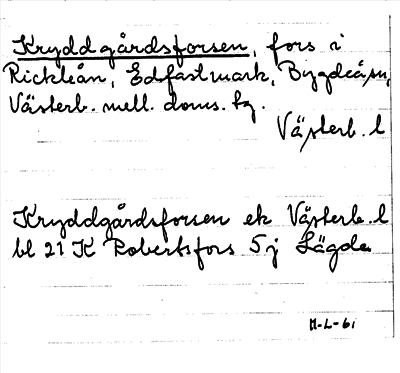 Kryddgårdsforsen, fors i
Rickleån, Edfastmark, Bygdeå sn,
Västerb. mell. doms. tg.
Västerb. l
Kryddgårdsforsen ek Västerb. l
bl 21 K Robertsfors 5 j Lägde
H-L-61